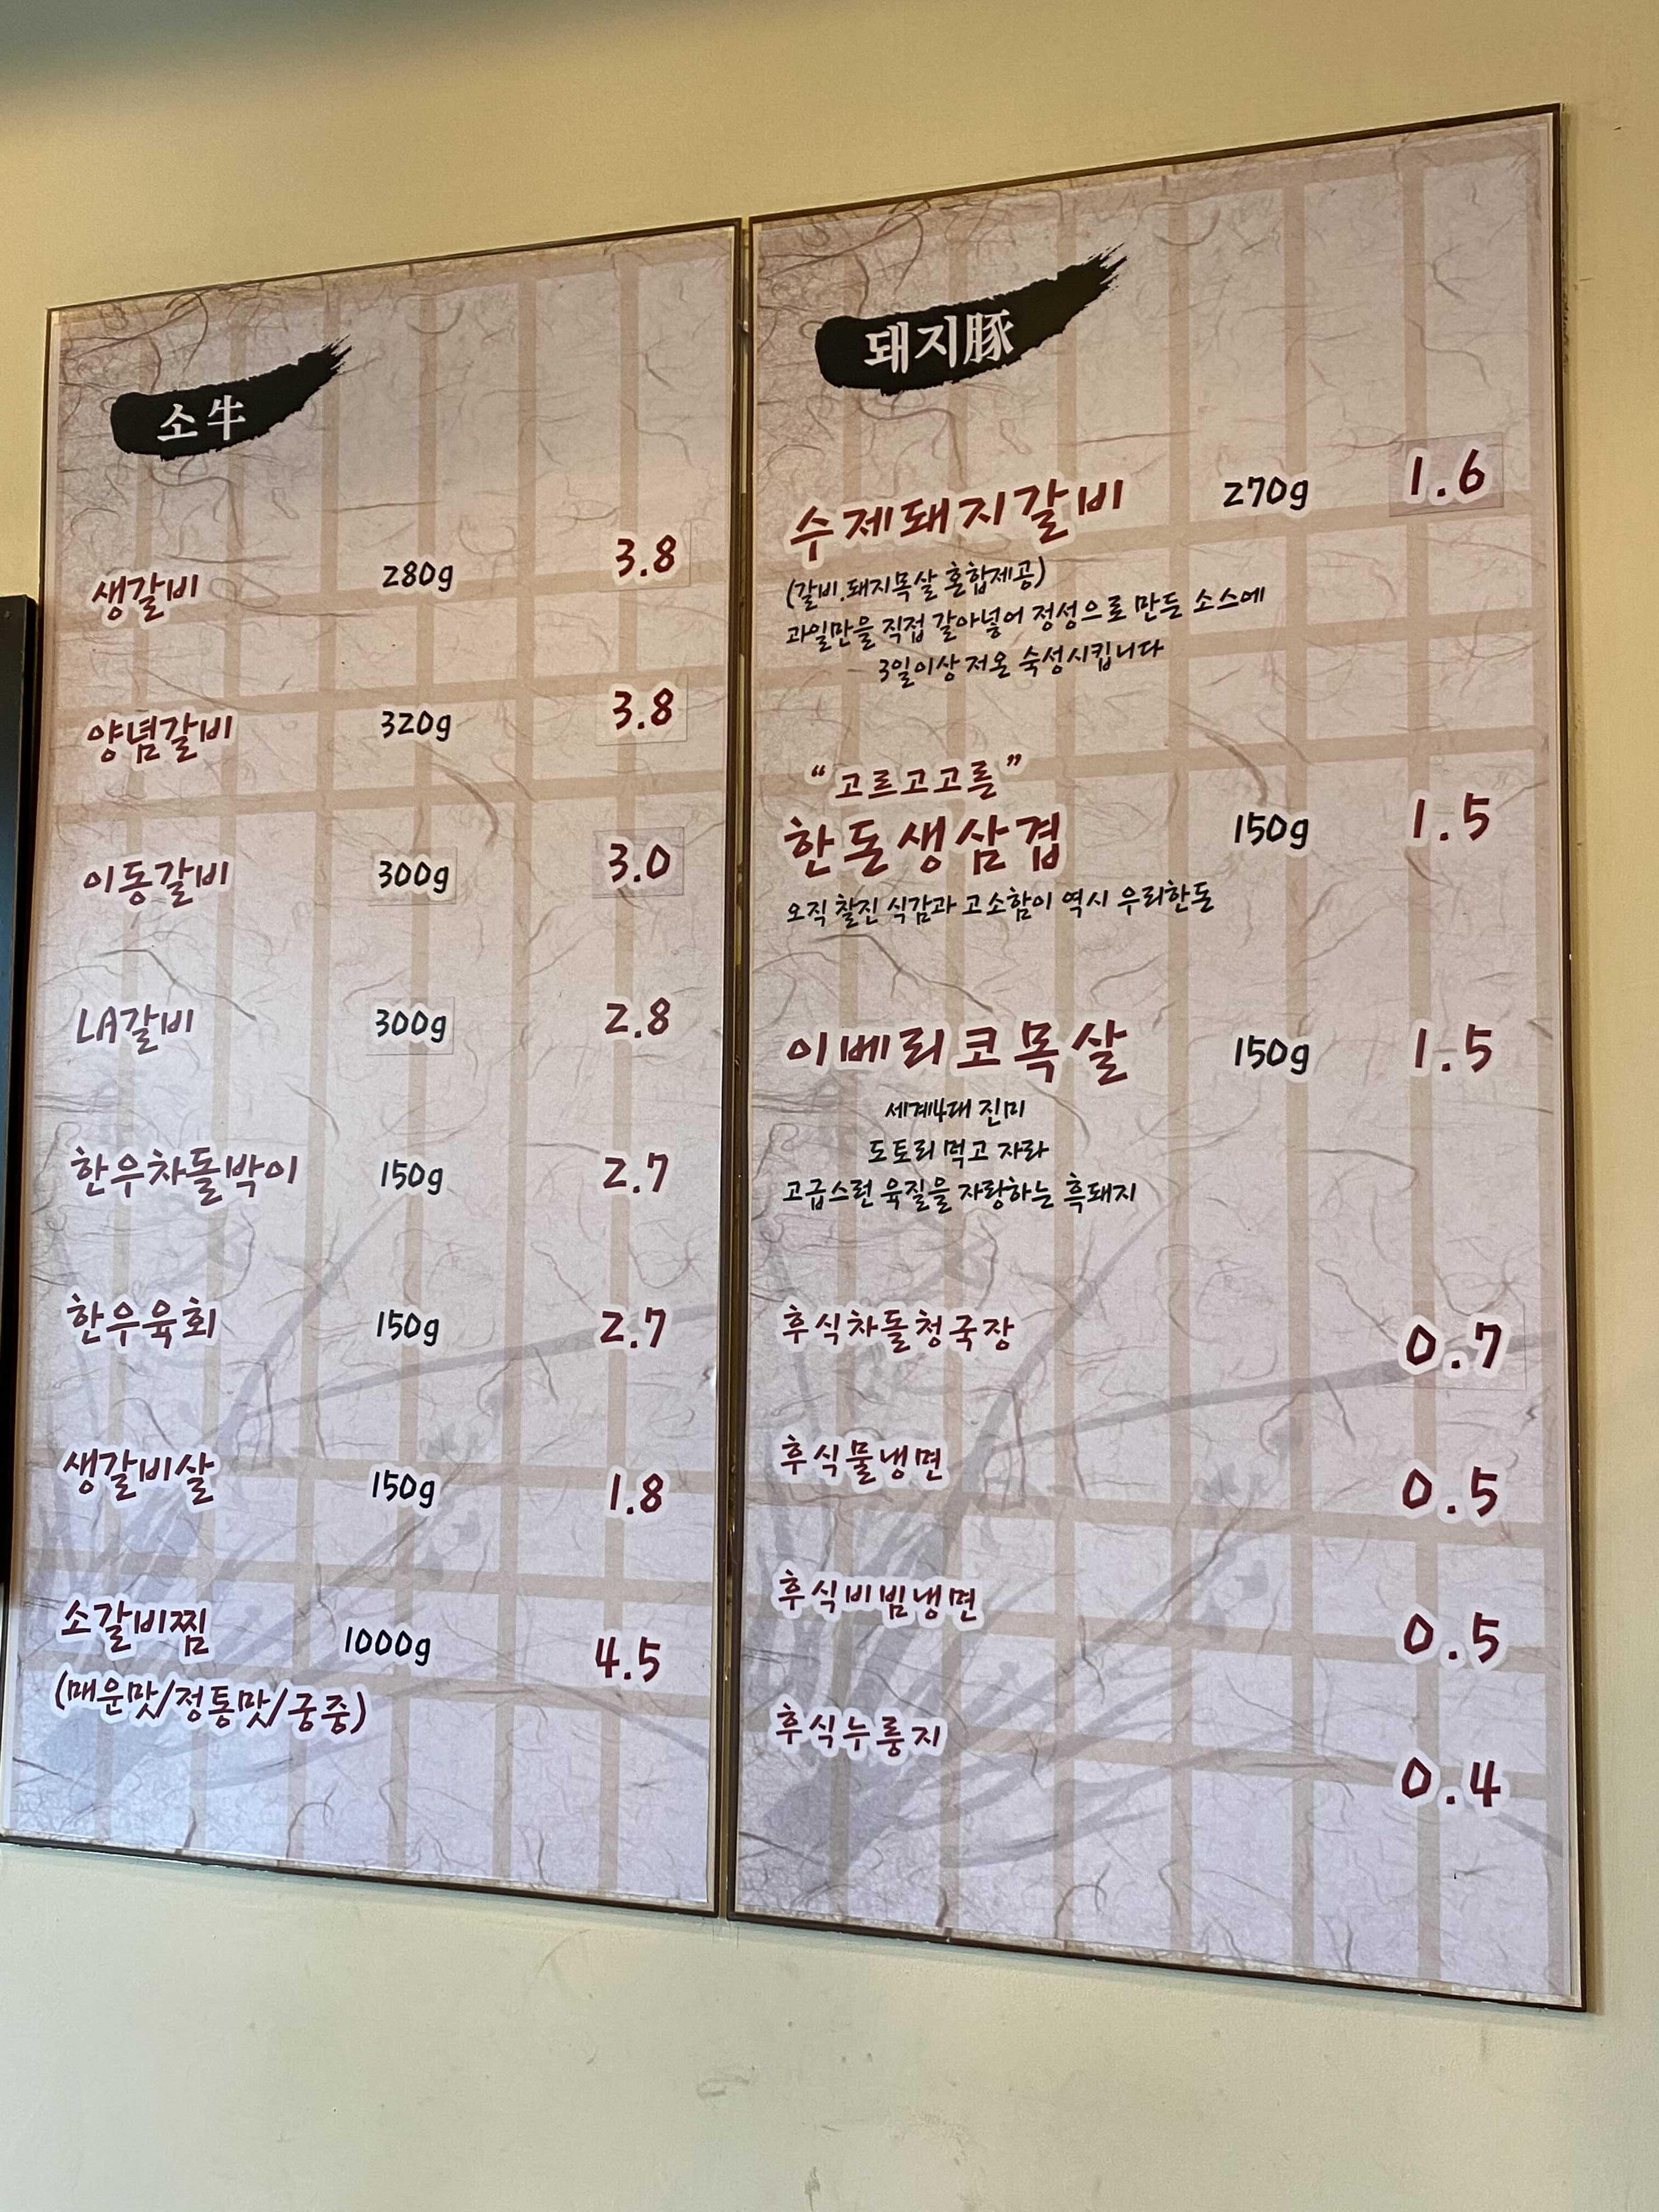 소牛
생갈비 280g 3.8
양념갈비 320g 3.8
이동갈비 300g 3.0
LA갈비 300g 2.8
한우차돌박이 150g 2.7
한우육회 150g 2.7
생갈비살 150g 1.8
소갈비찜 1000g 4.5
(매운맛/정통맛/궁중)
돼지豚
수제돼지갈비 270g 1.6
(갈비.돼지목살 혼합제공)
과일만을 직접 갈아넣어 정성으로 만든 소스에
3일이상 저온 숙성시킵니다
“고르고고른”
한돈생삼겹 150g 1.5
오직 찰진 식감과 고소함이 역시 우리한돈
이베리코목살 150g 1.5
세계4대 진미
도토리 먹고 자라
고급스런 육질을 자랑하는 흑돼지
후식차돌청국장 0.7
후식물냉면 0.5
후식비빔냉면 0.5
후식누룽지 0.4